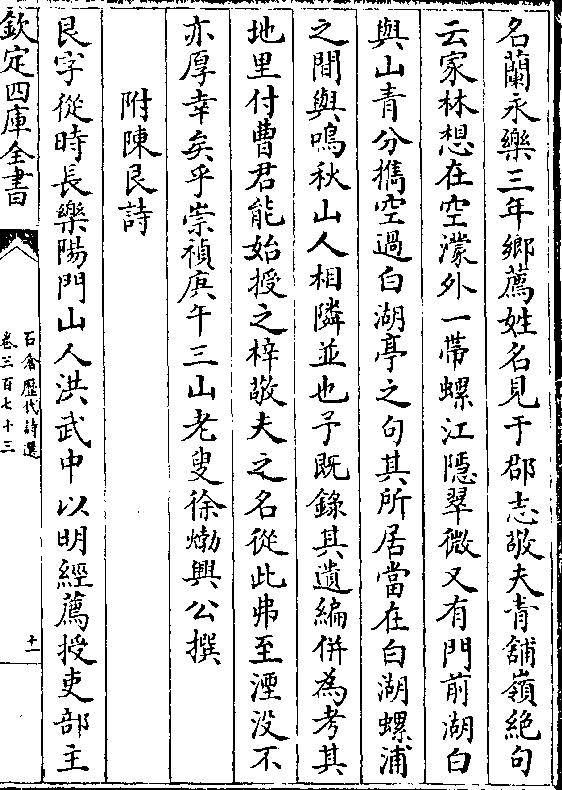 名蘭永樂三年鄉薦姓名見于郡志敬夫青舖嶺絶句
云家林想在空濛外一帶螺江隱翠微又有門前湖白
與山青分携空過白湖亭之句其所居當在白湖螺浦
之間與鳴秋山人相隣並也予既錄其遺編併為考其
地里付曹君能始授之梓敬夫之名從此弗至湮没不
亦厚幸矣乎崇禎庚午三山老叟徐𤊹興公撰
附陳艮詩
艮字從時長樂陽門山人洪武中以明經薦授吏部主
欽定四庫全書
石倉歷代詩選
卷三百七十三
十一